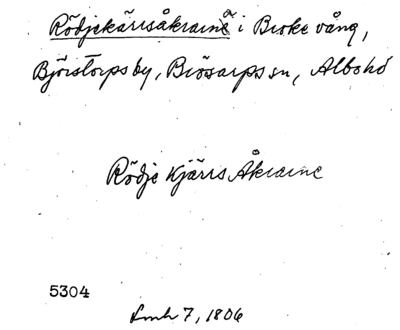 Rödjekärrsåkrarne i Broke vång,
Björstorps by, Brösarps sn, Albo hd
Rödje Kjärrs Åkrarne
5304
Lmh 7, 1806